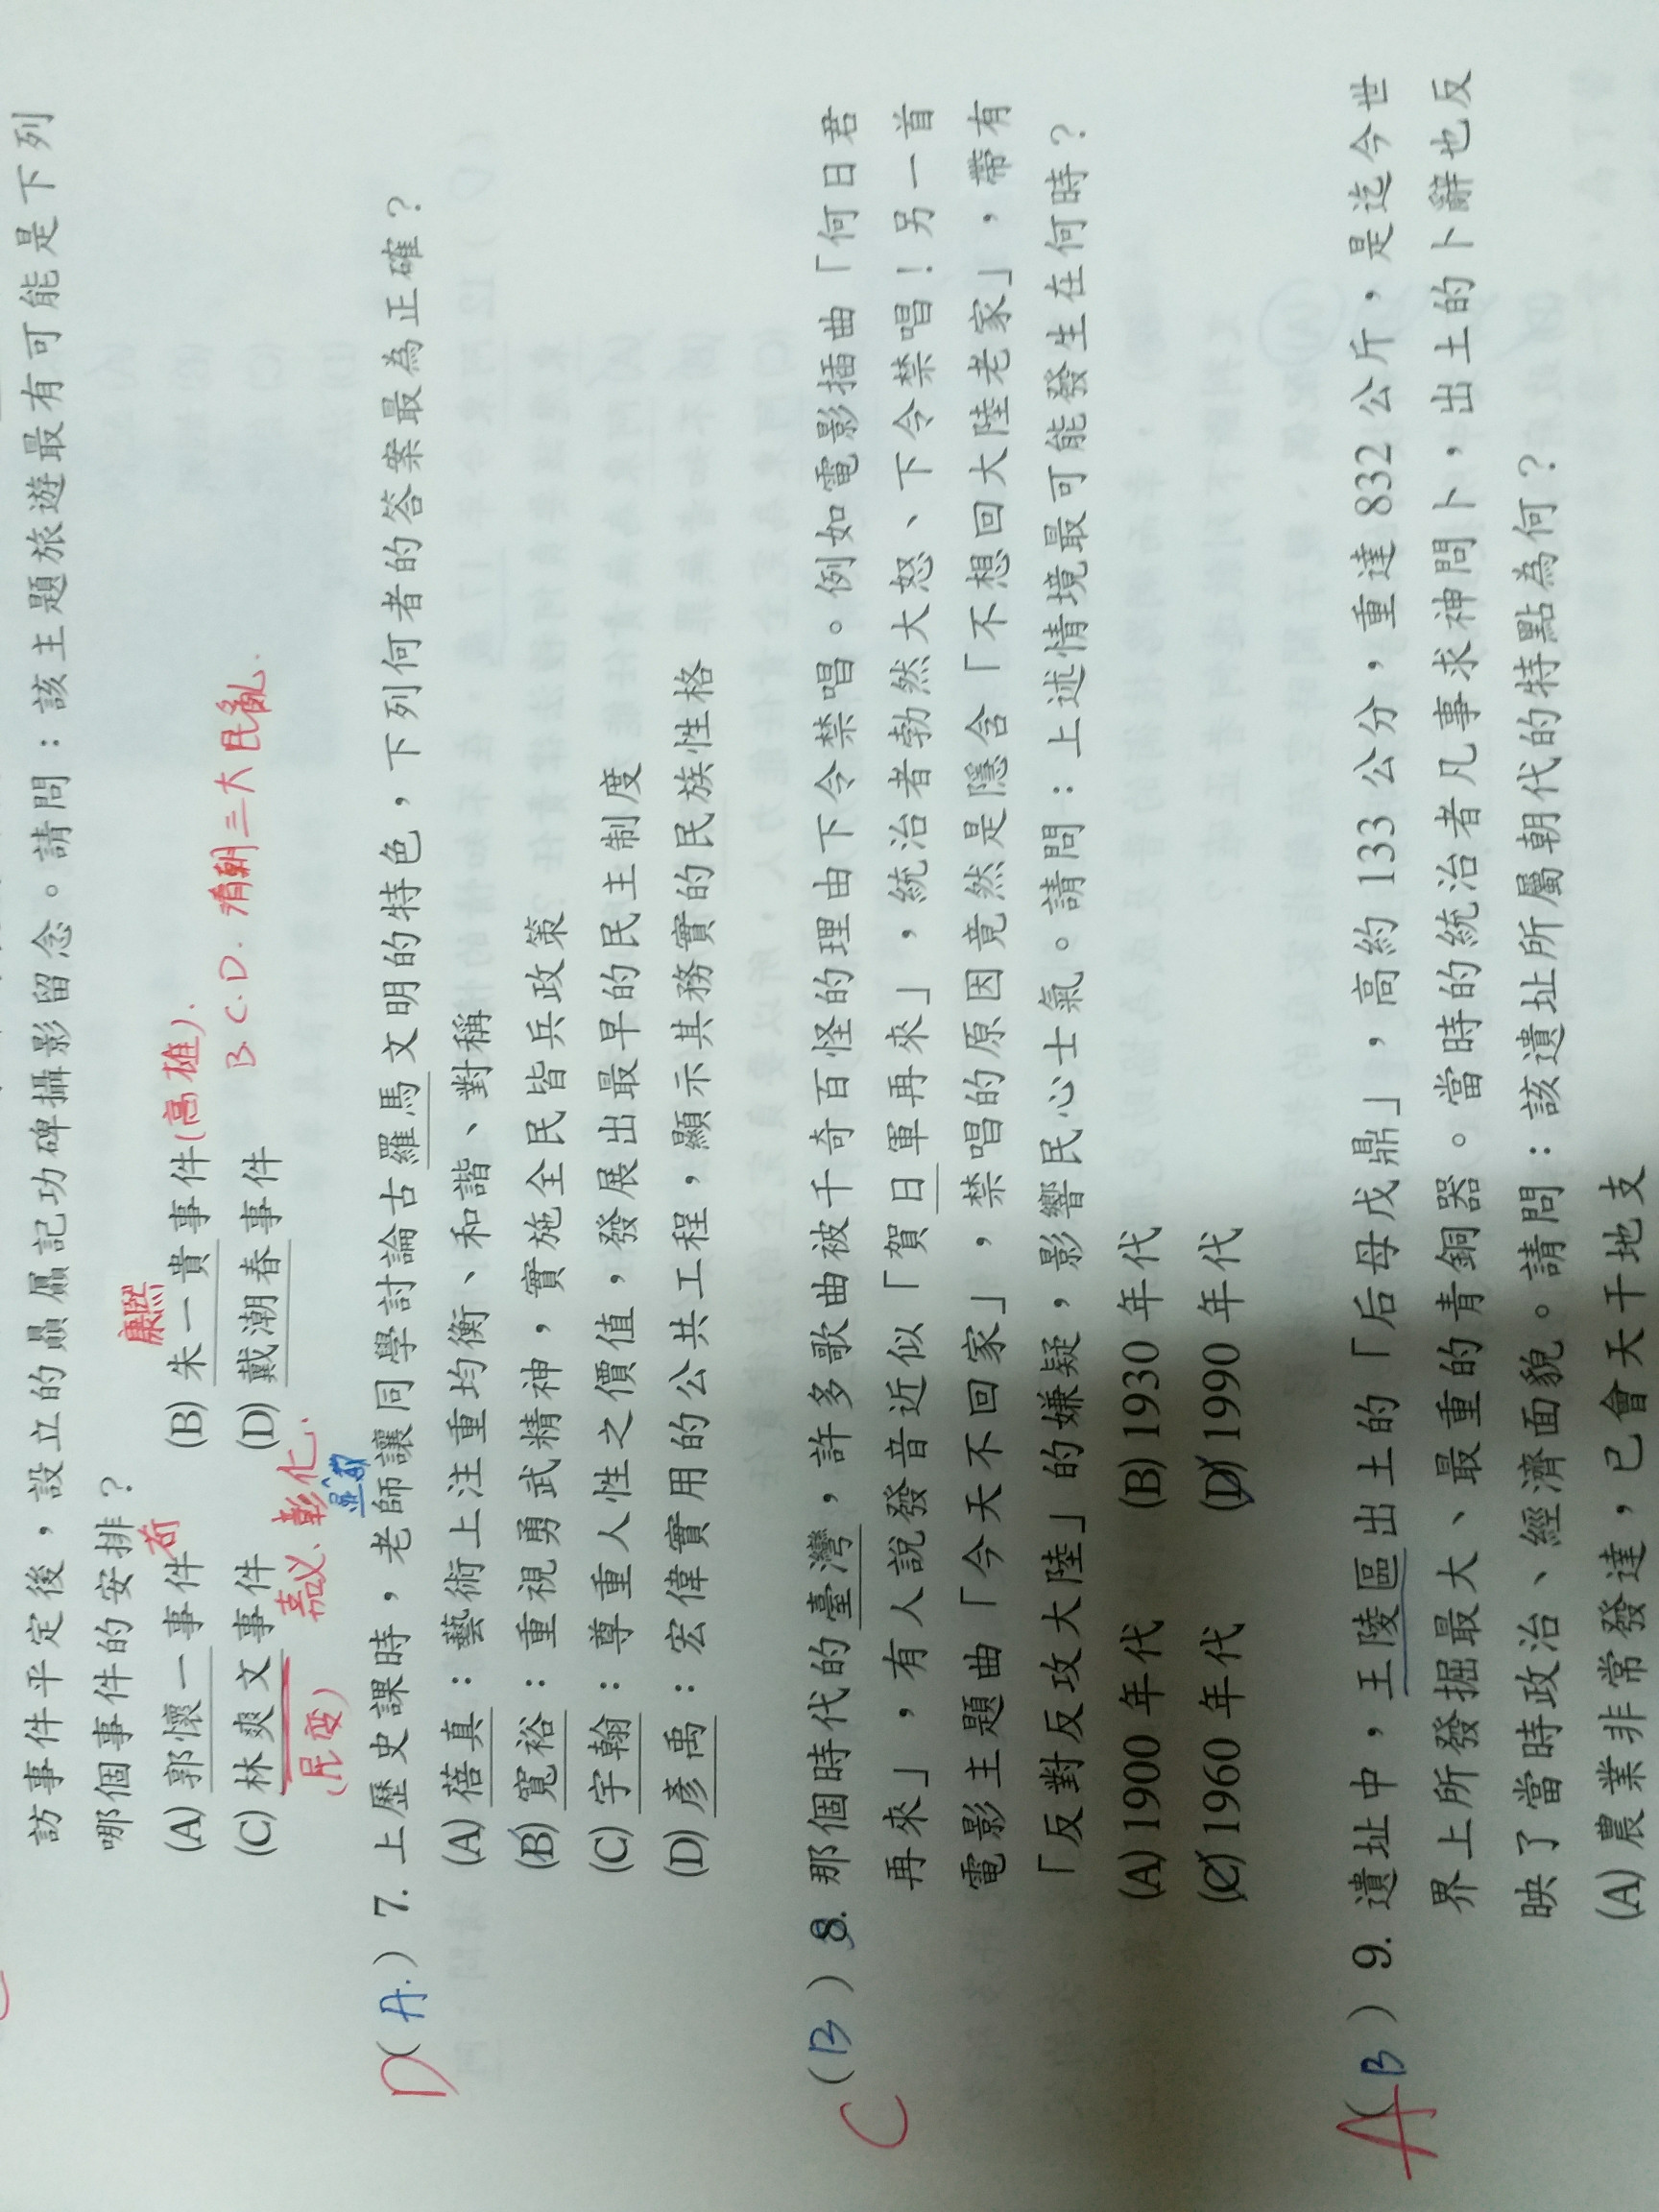 訪事件平定後，設立的贔屭記功碑攝影留念。請問：該主題旅遊最有可能是下列
哪個事件的安排？
康熙
(A) 郭懷一事件 荷 (B) 朱一貴事件(高雄).
(C) 林爽文事件 (D) 戴潮春事件 B.C.D. 清朝三大民亂.
(民变) 嘉义.彰化.
D (A.) 7. 上歷史課時，老師讓同學討論古羅馬文明的特色，下列何者的答案最為正確？
(A) 蓓真：藝術上注重均衡、和諧、對稱
(B) 寬裕：重視勇武精神，實施全民皆兵政策
(C) 宇翰：尊重人性之價值，發展出最早的民主制度
(D) 彥禹：宏偉實用的公共工程，顯示其務實的民族性格
C (B) 8. 那個時代的臺灣，許多歌曲被千奇百怪的理由下令禁唱。例如電影插曲「何日君
再來」，有人說發音近似「賀日軍再來」，統治者勃然大怒、下令禁唱！另一首
電影主題曲「今天不回家」，禁唱的原因竟然是隱含「不想回大陸老家」，帶有
「反對反攻大陸」的嫌疑，影響民心士氣。請問：上述情境最可能發生在何時？
(A) 1900 年代 (B) 1930 年代
(C) 1960 年代 (D) 1990 年代
A (B) 9. 遺址中，王陵區出土的「后母戊鼎」，高約 133 公分，重達 832 公斤，是迄今世
界上所發掘最大、最重的青銅器。當時的統治者凡事求神問卜，出土的卜辭也反
映了當時政治、經濟面貌。請問：該遺址所屬朝代的特點為何？
(A) 農業非常發達，已會天干地支